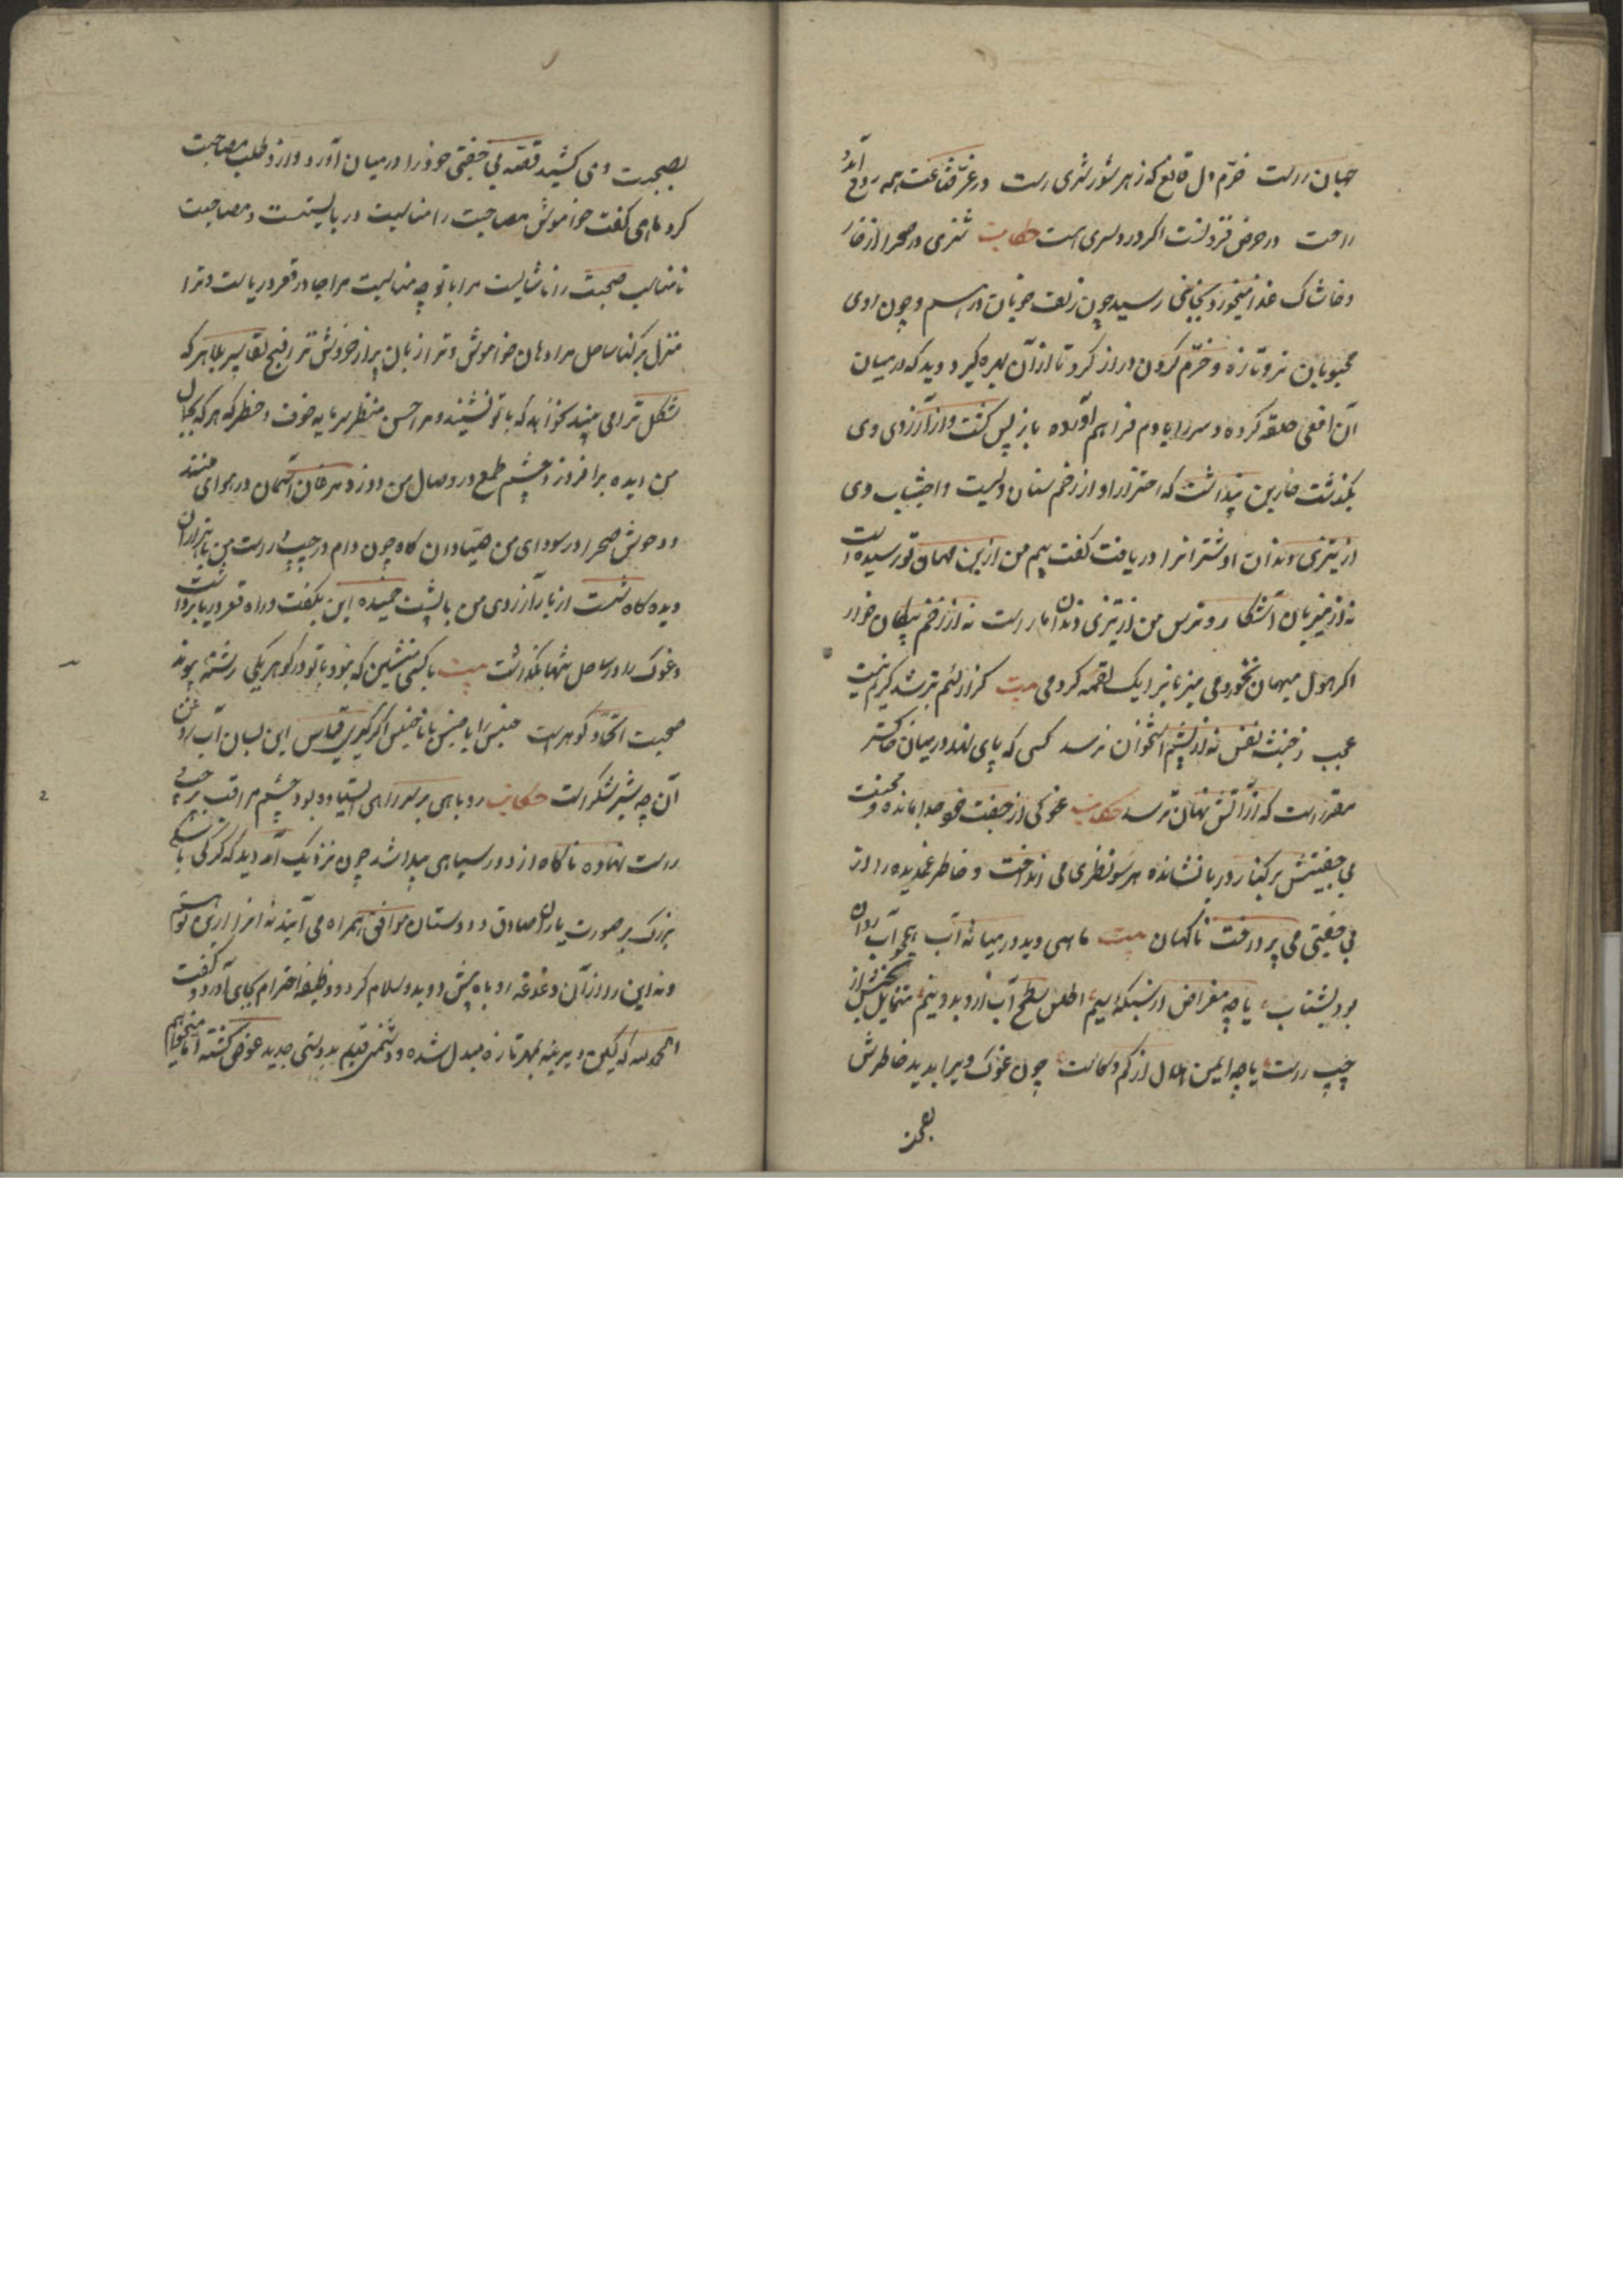 جهان راست خرّم دل قانع که ز هر شور و شری رست در غرّ قناعت همه روح آمد و
راحت در حرض فزونست اگر دردسری است حکایت شتری در صحرا از خار
و خاشاک غذا میخورد بخاربنی رسید چون زلف خوبان درهم و چون روی
محبوبان تر و تازه و خرّم گردن دراز کرد تا از آن بهره گیرد دید که در میان
آن افعی حلقه کرده و سر را با دم فراهم آورده باز پس گشت و از آرزوی وی
بگذشت خاربن پنداشت که احتراز او از زخم سنان ویست و اجتناب وی
از تیزی دندان او شتر آنرا دریافت گفت بیم من ازین مهمان تو رسیده است
نه از میزبان آشکار و ترس من از تیزی دندان مار است نه از زخم پیکان خار
اگر هول میهمان نخوردمی میزبانرا یک لقمه کردمی بیت گر از لئیم بترسد کریم نیست
عجب ز خبث نفس نه از پشم استخوان ترسد کسی که پای نهد در میان خاکستر
مقرر است که از آتش نهان ترسد حکایت غوکی از جفت خود جدا مانده و محنت
بی جفتیش بر کنار دریا نشانده هر سو نظری می انداخت و خاطر غمدیده را از
بی جفتی می پرداخت ناگهان بیت ماهی دید در میانه آب همچو آب روان
بود بشتاب یا چه مقراض از سبیکه سیم اطلس سطح آب ازو بدو نیم متمایل جنبش از
چپ راست یا چه ایمن هلال از کم و کاست چون غوک ویرا بدید خاطرش
بصحبت
بصحبت وی کشید قصه بی جفتی خود را در میان آورد و ازو طلب مصاحبت
کرد ماهی گفت خاموش مصاحبت را مناسبت در بایستست و مصاحبت
نامناسب صحبت را ناشایست مرا با تو چه مناسبت مرا جا در قعر دریاست و ترا
منزل بر کنار ساحل مرا دهان خاموش و ترا زبان پر از خروش ترا قبح لقا سپر بلا هر که
شکل ترا می بیند نخواهد که با تو نشیند و مرا حسن منظر سرمایه خوف و خطر که هر که بجمال
من دیده برافروزد چشم طمع در وصال من دوزد مرغان آسمان در هوای منند
و وحوش صحرا در سودای من صیادان گاه چون دام در جست من با هزاران
دیده گاه شست از بار آرزوی من با پشت خمیده این بگفت و راه قعر دریا برداشت
و غوک را در ساحل تنها بگذاشت بیت با کسی منشین که نبود با تو در گوهر یکی رشته پیوند
صحبت اتحاد گوهرست جنس را با جنس با ناجنس اگر گیری قیاس این بسان آب و روغن
آن چه شیر و شکر است حکایت روباهی بر سر راهی ایستاده بود چشم مراقبت بر چپ
راست نهاده ناگاه از دور سیاهی پیدا شد چون نزدیک آمد دید که گرگی با سگی
بزرگ بر صورت یاران صادق و دوستان موافق همراه می آیند نه آنرا ازین توهمی
و نه این را از آن دغدغه روباه پیش دوید و سلام کرد و وظیفه احترام بجای آورد و گفت
الحمد لله که کین دیرینه بمهر تازه مبدل شده و دشمنی قدیم بدوستی جدید عوض گشته اما میخواهم